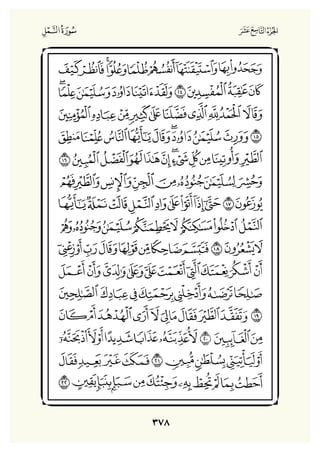 الجُزْءُ التَّاسِعَ عَشَرَ
سُورَةُ النَّمْلِ
وَجَحَدُوا۟ بِهَا وَٱسْتَيْقَنَتْهَآ أَنفُسُهُمْ ظُلْمًا وَعُلُوًّا ۚ فَٱنظُرْ كَيْفَ
كَانَ عَٰقِبَةُ ٱلْمُفْسِدِينَ ١٤ وَلَقَدْ ءَاتَيْنَا دَاوُۥدَ وَسُلَيْمَٰنَ عِلْمًا ۖ
وَقَالَا ٱلْحَمْدُ لِلَّهِ ٱلَّذِى فَضَّلَنَا عَلَىٰ كَثِيرٍ مِّنْ عِبَادِهِ ٱلْمُؤْمِنِينَ
١٥ وَوَرِثَ سُلَيْمَٰنُ دَاوُۥدَ ۖ وَقَالَ يَٰٓأَيُّهَا ٱلنَّاسُ عُلِّمْنَا مَنطِقَ
ٱلطَّيْرِ وَأُوتِينَا مِن كُلِّ شَىْءٍ ۖ إِنَّ هَٰذَا لَهُوَ ٱلْفَضْلُ ٱلْمُبِينُ ١٦
وَحُشِرَ لِسُلَيْمَٰنَ جُنُودُهُۥ مِنَ ٱلْجِنِّ وَٱلْإِنسِ وَٱلطَّيْرِ فَهُمْ
يُوزَعُونَ ١٧ حَتَّىٰٓ إِذَآ أَتَوْا۟ عَلَىٰ وَادِ ٱلنَّمْلِ قَالَتْ نَمْلَةٌ يَٰٓأَيُّهَا
ٱلنَّمْلُ ٱدْخُلُوا۟ مَسَٰكِنَكُمْ لَا يَحْطِمَنَّكُمْ سُلَيْمَٰنُ وَجُنُودُهُۥ وَهُمْ
لَا يَشْعُرُونَ ١٨ فَتَبَسَّمَ ضَاحِكًا مِّن قَوْلِهَا وَقَالَ رَبِّ أَوْزِعْنِىٓ
أَنْ أَشْكُرَ نِعْمَتَكَ ٱلَّتِىٓ أَنْعَمْتَ عَلَىَّ وَعَلَىٰ وَٰلِدَىَّ وَأَنْ أَعْمَلَ
صَٰلِحًا تَرْضَىٰهُ وَأَدْخِلْنِى بِرَحْمَتِكَ فِى عِبَادِكَ ٱلصَّٰلِحِينَ
١٩ وَتَفَقَّدَ ٱلطَّيْرَ فَقَالَ مَا لِىَ لَآ أَرَى ٱلْهُدْهُدَ أَمْ كَانَ
مِنَ ٱلْغَآئِبِينَ ٢٠ لَأُعَذِّبَنَّهُۥ عَذَابًا شَدِيدًا أَوْ لَأَا۟ذْبَحَنَّهُۥٓ أَوْ
لَيَأْتِيَنِّى بِسُلْطَٰنٍ مُّبِينٍ ٢١ فَمَكَثَ غَيْرَ بَعِيدٍ فَقَالَ
أَحَطتُ بِمَا لَمْ تُحِطْ بِهِۦ وَجِئْتُكَ مِن سَبَإٍۭ بِنَبَإٍ يَقِينٍ ٢٢
٣٧٨